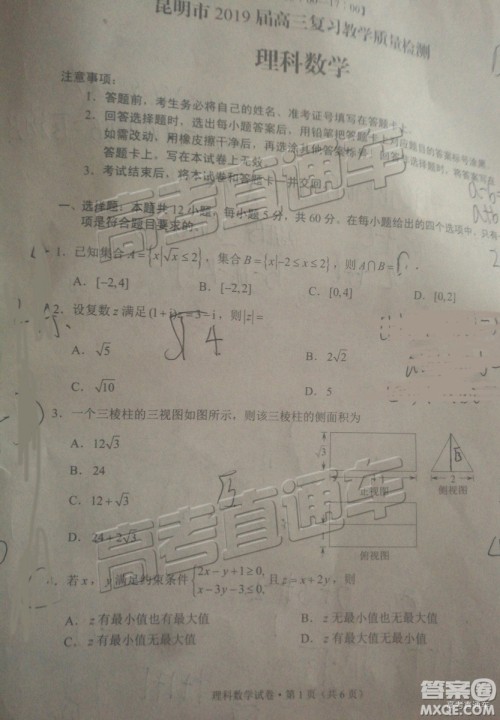 昆明市 2019 届高三复习教学质量检测
理科数学
注意事项：
1．答题前，考生务必将自己的姓名、准考证号填写在答题卡上。
2．回答选择题时，选出每小题答案后，用铅笔把答题卡上对应题目的答案标号涂黑，
如需改动，用橡皮擦干净后，再选涂其他答案标号。回答
答题卡上，写在本试卷上无效。
3．考试结束后，将本试卷和答题卡一并交回。
一、选择题：本题共 12 小题，每小题 5 分，共 60 分，在每小题给出的四个选项中，只有
项是符合题目要求的。
1．已知集合 A={x|√x≤2}，集合 B={x|-2≤x≤2}，则 A∩B=
A．[-2,4] B．[-2,2] C．[0,4] D．[0,2]
2．设复数 z 满足(1+i)z=3-i，则|z|=
A．√5 B．2√2
C．√10 D．5
3．一个三棱柱的三视图如图所示，则该三棱柱的侧面积为
A．12√3
B．24
C．12+√3
D．24+2√3
√3
4
2
正视图 侧视图
俯视图
若 x，y 满足约束条件{2x-y+1≥0, x-3y-3≤0, 且 z=x+2y，则
A．z 有最小值也有最大值 B．z 无最小值也无最大值
C．z 有最小值无最大值 D．z 有最大值无最小值
理科数学试卷·第 1 页（共 6 页）
高考直通车
高考直通车
答案圈
MXQE.COM